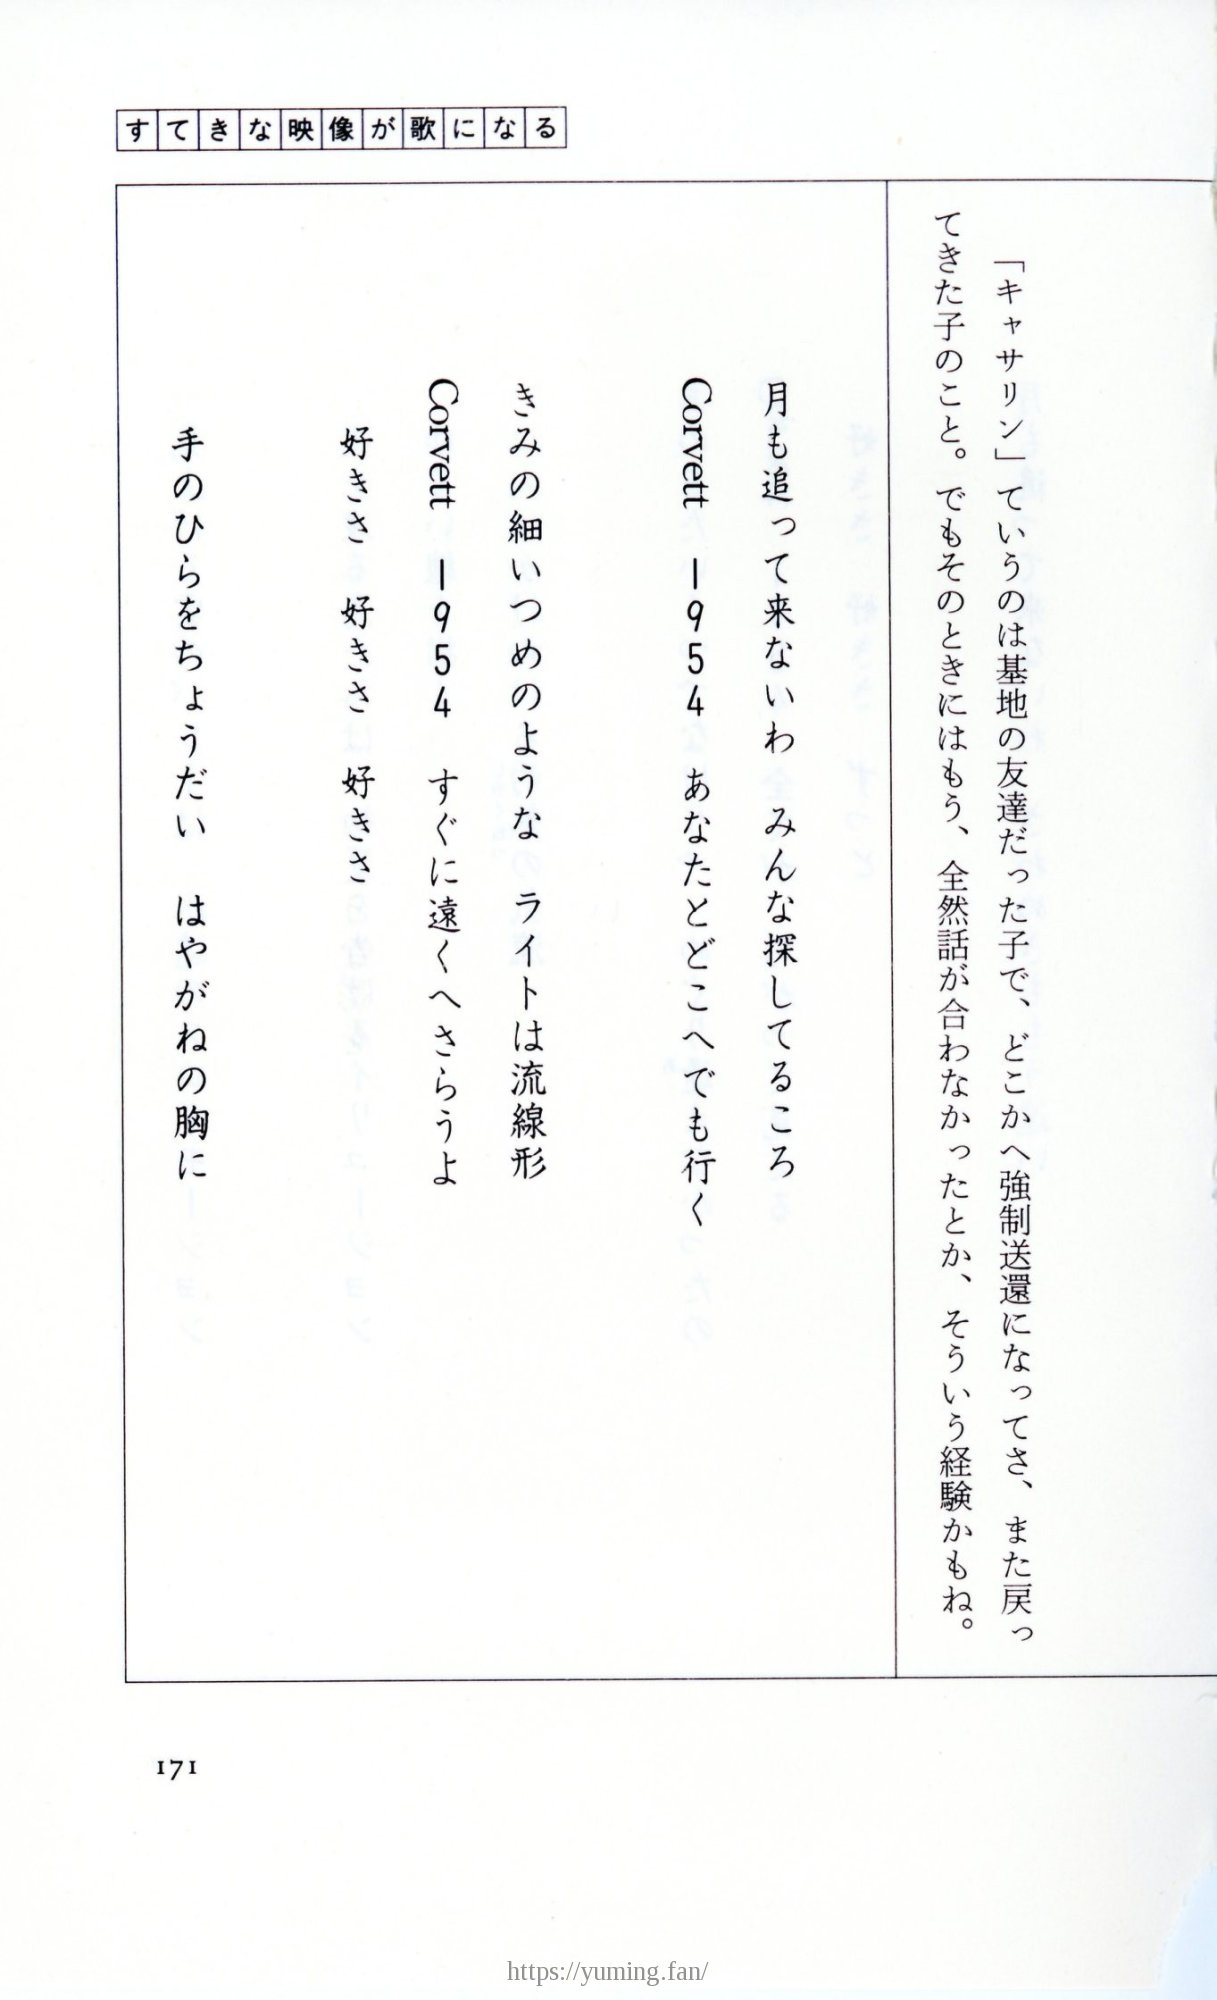 すてきな映像が歌になる
「キャサリン」ていうのは基地の友達だった子で、どこかへ強制送還になってさ、また戻っ
てきた子のこと。でもそのときにはもう、全然話が合わなかったとか、そういう経験かもね。
月も追って来ないわ　みんな探してるころ
Corvett　1954　あなたとどこへでも行く
きみの細いつめのような　ライトは流線形
Corvett　1954　すぐに遠くへさらうよ
好きさ　好きさ　好きさ
手のひらをちょうだい　はやがねの胸に
171
https://yuming.fan/